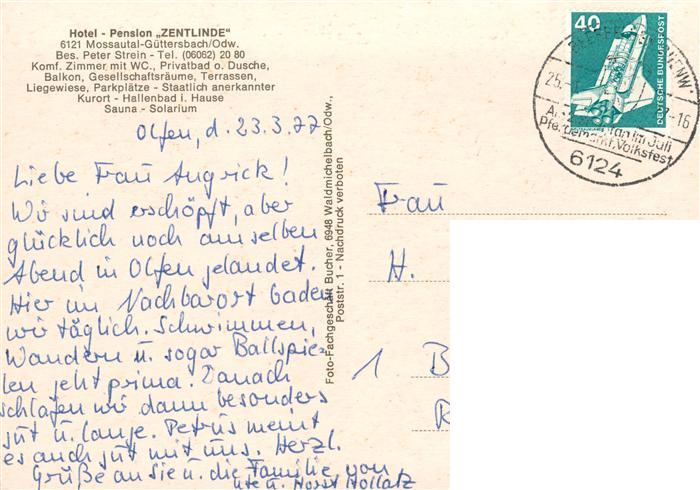 Hotel - Pension „ZENTLINDE"
6121 Mossautal-Güttersbach/Odw.
Bes. Peter Strein - Tel. (06062) 20 80
Komf. Zimmer mit WC., Privatbad o. Dusche,
Balkon, Gesellschaftsräume, Terrassen,
Liegewiese, Parkplätze - Staatlich anerkannter
Kurort - Hallenbad i. Hause
Sauna - Solarium
Olfen, d. 23.3.77
Liebe Frau Angrick!
Wir sind erschöpft, aber
glücklich noch am selben
Abend in Olfen gelandet.
Hier im Nachbarort baden
wir täglich. Schwimmen,
Wandern u. sogar Ballspie-
len geht prima. Danach
schlafen wir dann besonders
gut u. lange. Petrus meint
es auch gut mit uns. Herzl.
Grüße an Sie u. die Familie von
Ute u. Horst
Foto-Fachgeschäft Bucher, 6948 Waldmichelbach/Odw.,
Poststr. 1 - Nachdruck verboten
40
DEUTSCHE BUNDESPOST
25.
-16
im Juli
Pferdemarkt, Volksfest
6124
Frau
H.
1 B